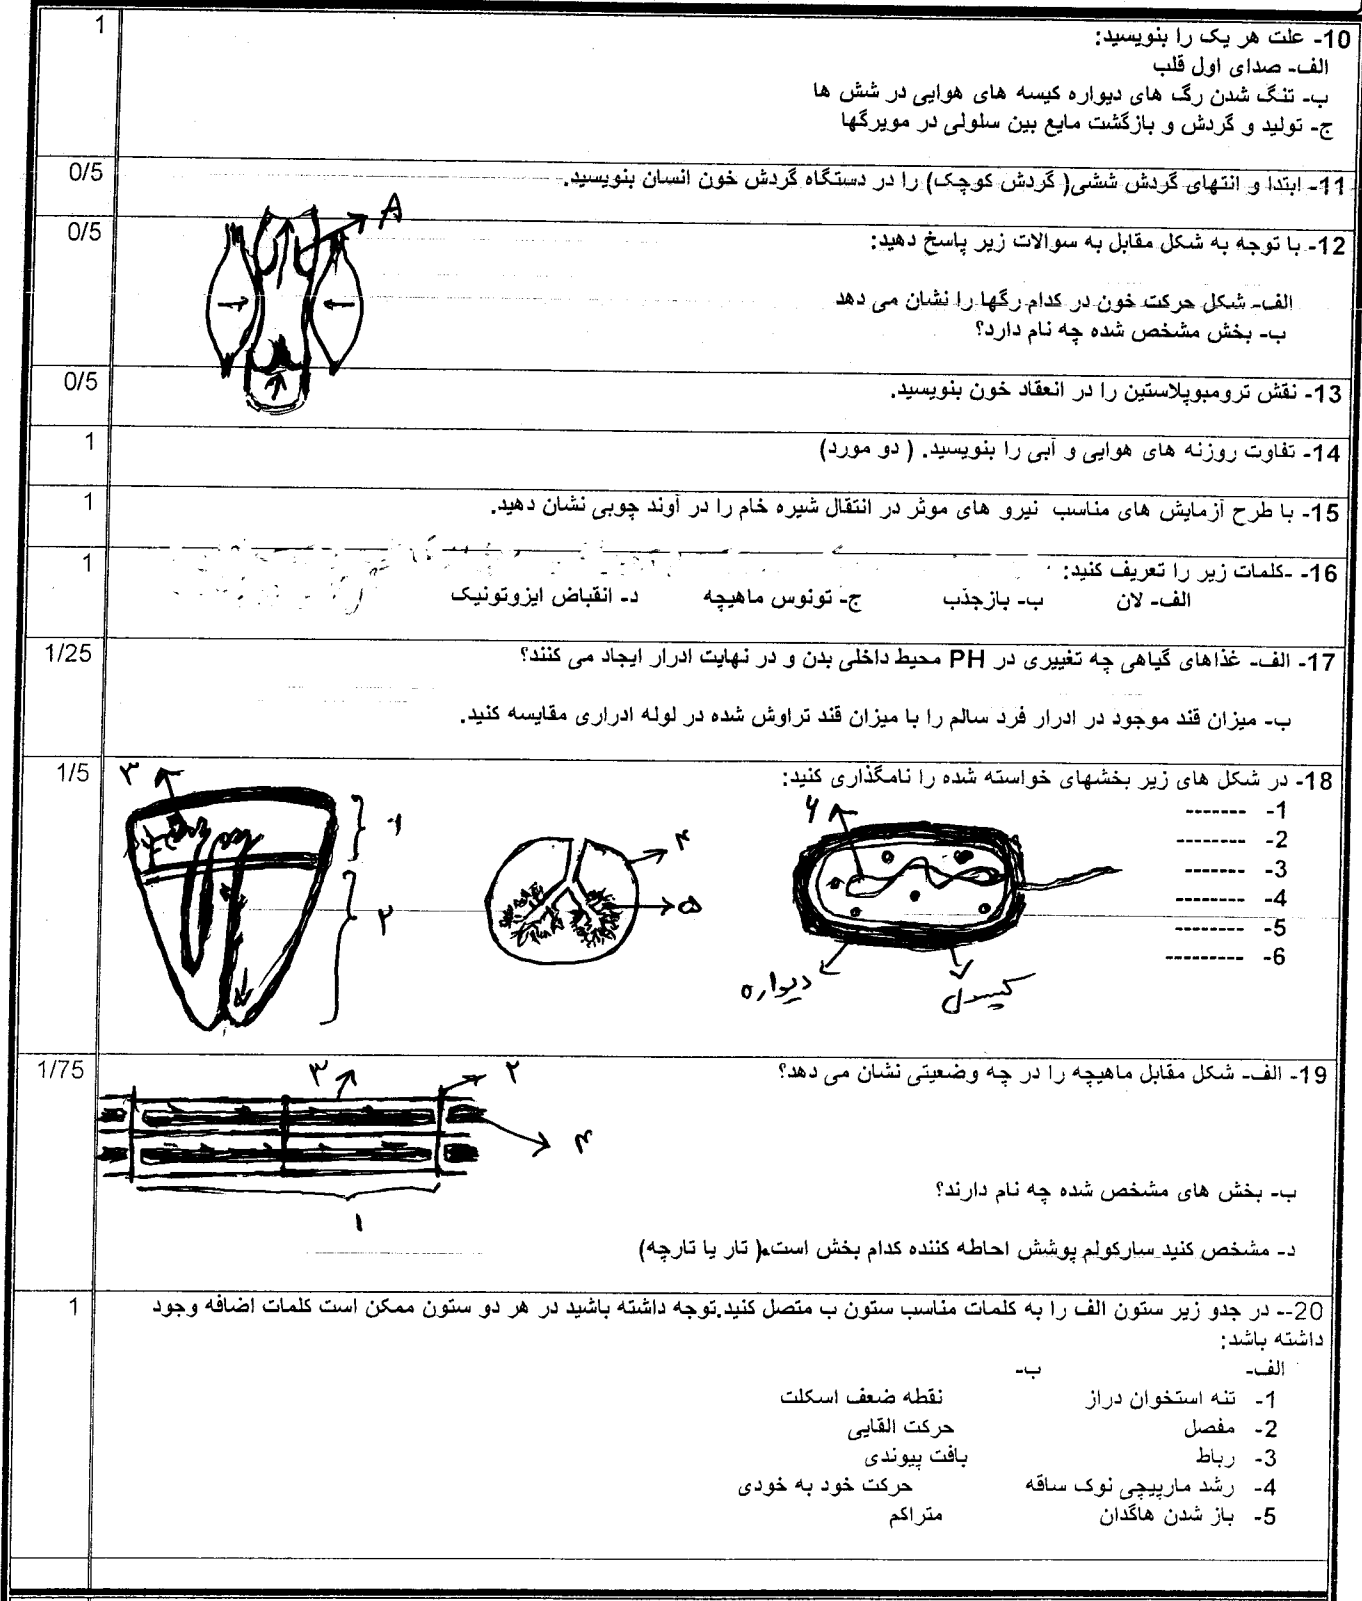 1
10- علت هر یک را بنویسید:
الف- صدای اول قلب
ب- تنگ شدن رگ های دیواره کیسه های هوایی در شش ها
ج- تولید و گردش و بازگشت مایع بین سلولی در مویرگها
0/5
11- ابتدا و انتهای گردش ششی( گردش کوچک) را در دستگاه گردش خون انسان بنویسید.
0/5
12- با توجه به شکل مقابل به سوالات زیر پاسخ دهید:
A
الف- شکل حرکت خون در کدام رگها را نشان می دهد
ب- بخش مشخص شده چه نام دارد؟
0/5
13- نقش ترومبوپلاستین را در انعقاد خون بنویسید.
1
14- تفاوت روزنه های هوایی و آبی را بنویسید. ( دو مورد)
1
15- با طرح آزمایش های مناسب نیرو های موثر در انتقال شیره خام را در آوند چوبی نشان دهید.
1
16- -کلمات زیر را تعریف کنید:
الف- لان ب- بازجذب ج- تونوس ماهیچه د- انقباض ایزوتونیک
1/25
17- الف- غذاهای گیاهی چه تغییری در PH محیط داخلی بدن و در نهایت ادرار ایجاد می کنند؟
ب- میزان قند موجود در ادرار فرد سالم را با میزان قند تراوش شده در لوله ادراری مقایسه کنید.
1/5
18- در شکل های زیر بخشهای خواسته شده را نامگذاری کنید:
1- -------
2- --------
3- -------
4- --------
5- --------
6- ---------
۳
۱
۲
۴
۵
۶
دیواره
کپسول
1/75
19- الف- شکل مقابل ماهیچه را در چه وضعیتی نشان می دهد؟
۳
۲
۴
۱
ب- بخش های مشخص شده چه نام دارند؟
د- مشخص کنید سارکولم پوشش احاطه کننده کدام بخش است.( تار یا تارچه)
1
20-- در جدو زیر ستون الف را به کلمات مناسب ستون ب متصل کنید.توجه داشته باشید در هر دو ستون ممکن است کلمات اضافه وجود
داشته باشد:
الف- ب-
1- تنه استخوان دراز نقطه ضعف اسکلت
2- مفصل حرکت القایی
3- رباط بافت پیوندی
4- رشد مارپیچی نوک ساقه حرکت خود به خودی
5- باز شدن هاگدان متراکم